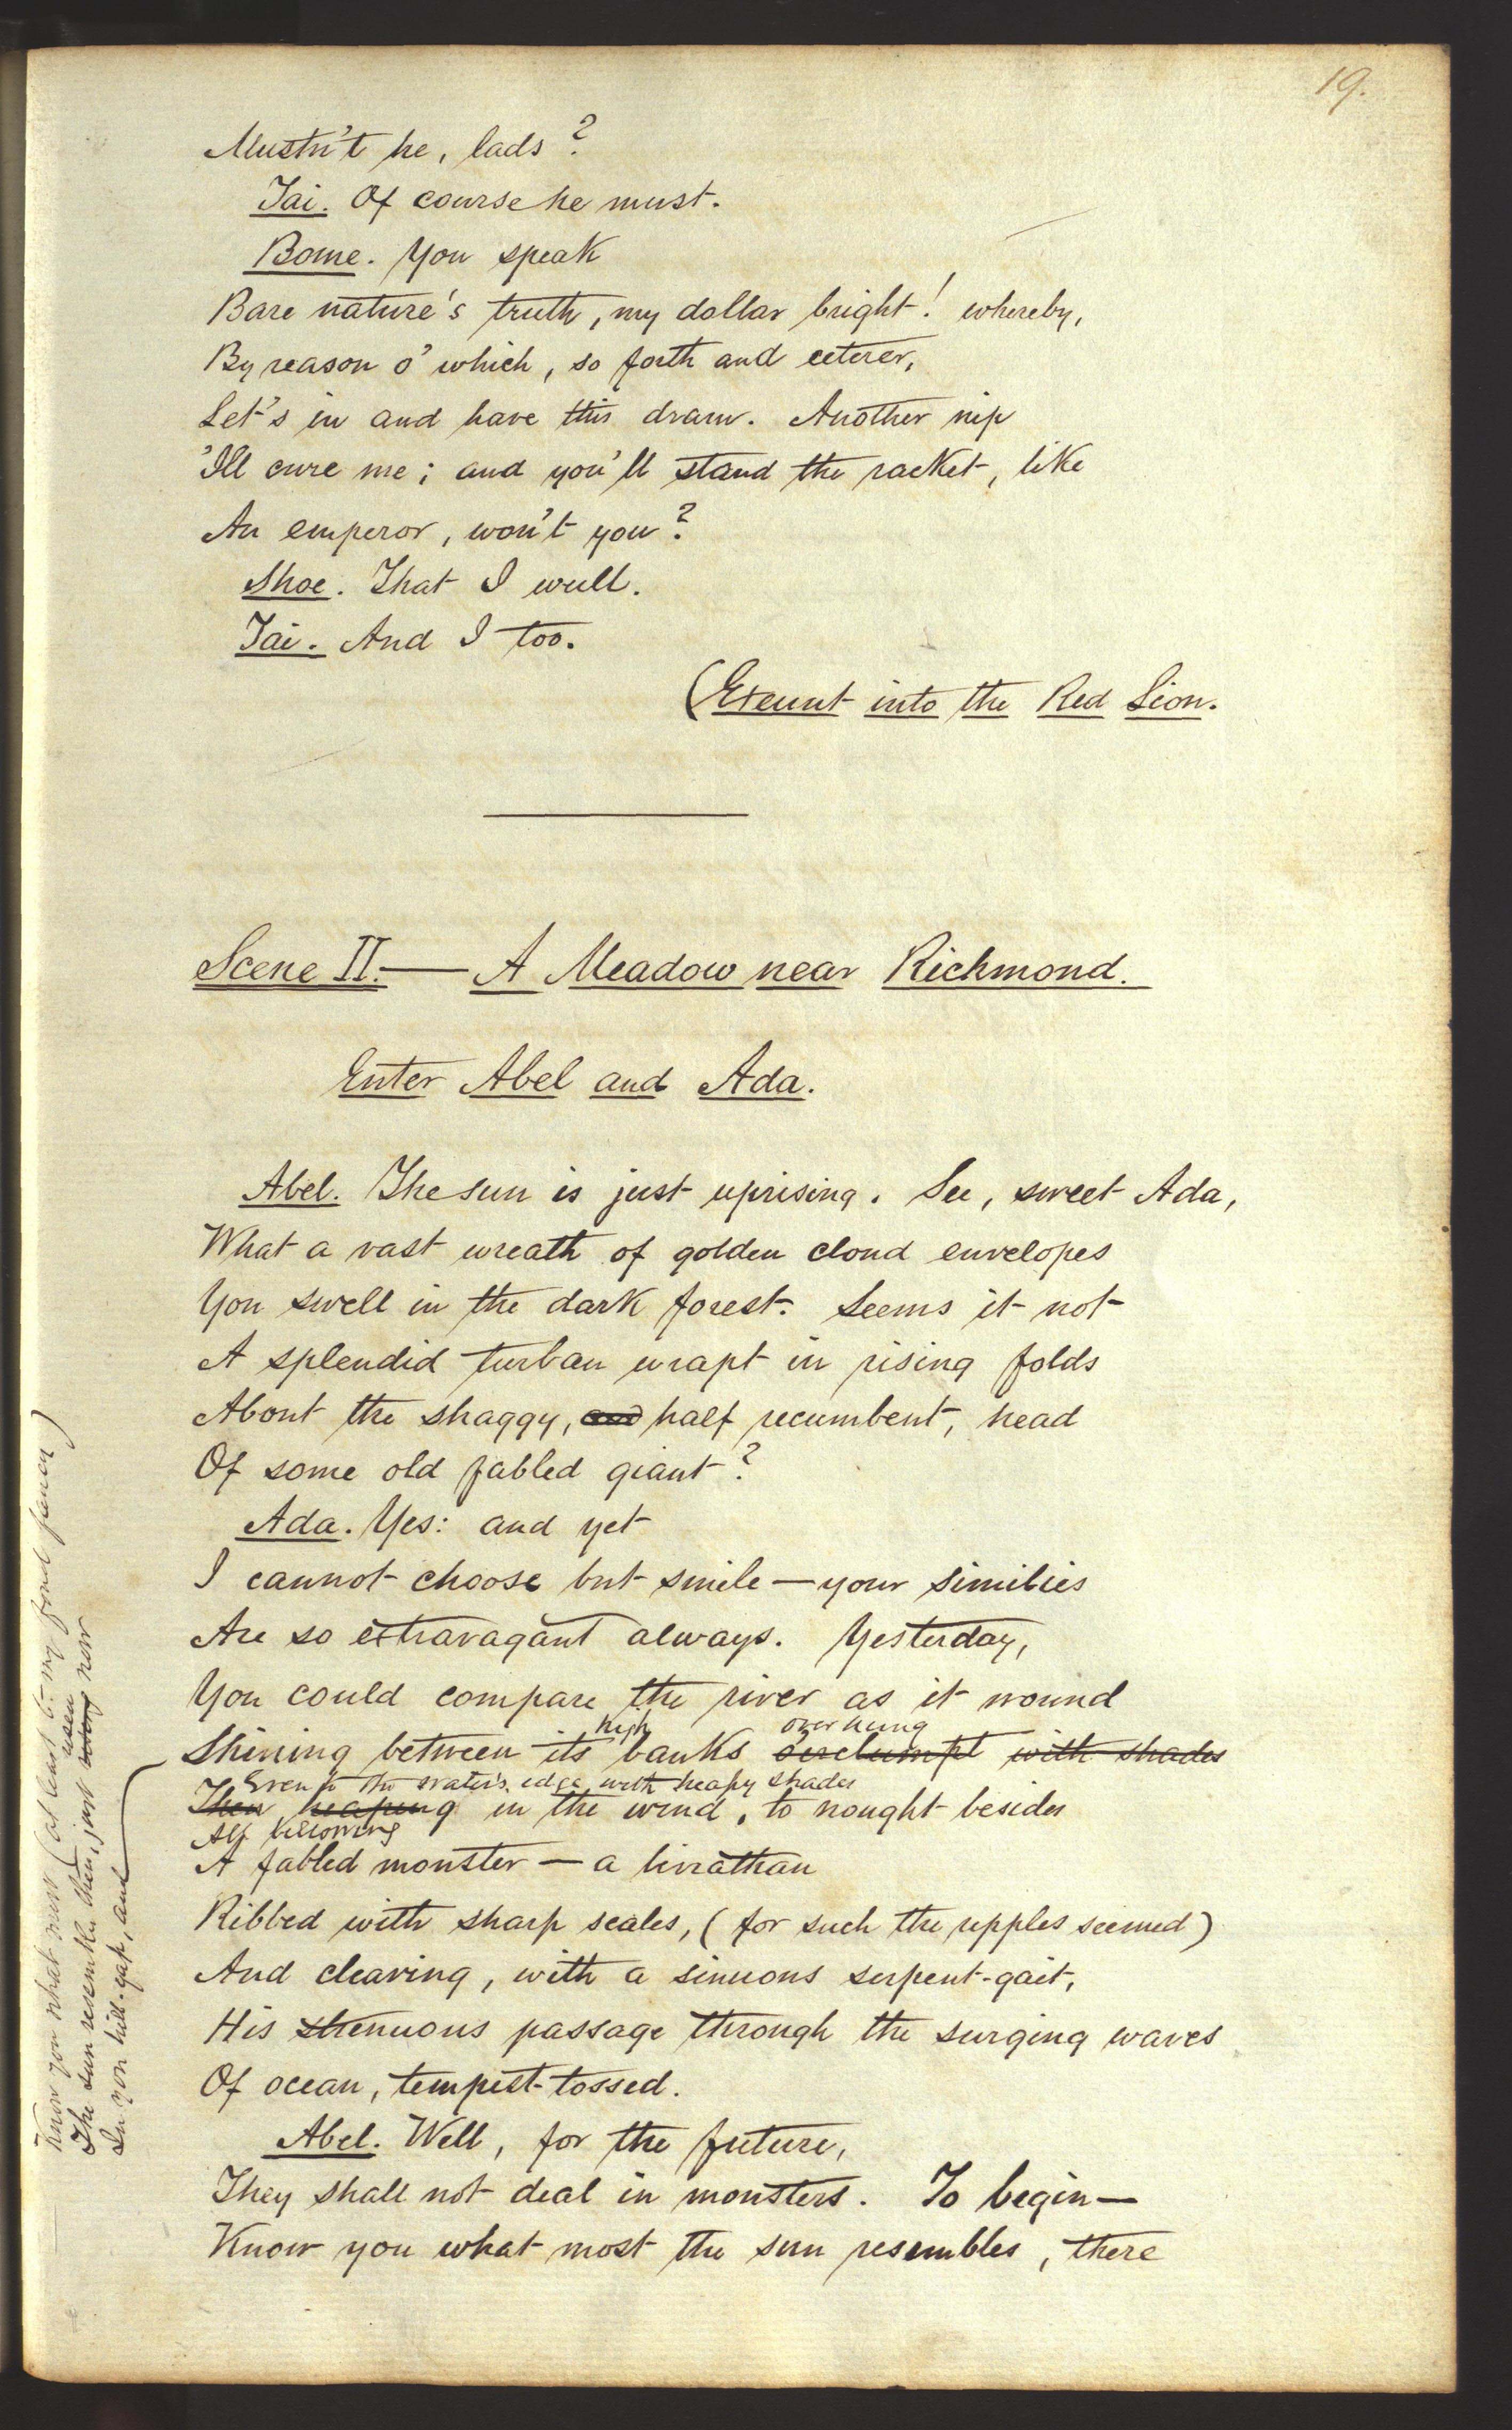 19.
Mustn't he, lads?
Tai. Of course he must.
Bome. You speak
Bare nature's truth, my dollar bright! whereby,
By reason o' which, so forth and ceterer,
Let's in and have this dram. Another nip
'Ill cure me; and you'll stand the racket, like
An emperor, won't you?
Shoe. That I wull.
Tai. And I too.
(Exeunt into the Red Lion.
Scene II.— A Meadow near Richmond.
Enter Abel and Ada.
Abel. The sun is just uprising. See, sweet Ada,
What a vast wreath of golden cloud envelopes
Yon swell in the dark forest. Seems it not
A splendid turban wrapt in rising folds
About the shaggy, and half recumbent, head
Of some old fabled giant?
Ada. Yes: and yet
I cannot choose but smile—your similies
Are so extravagant always. Yesterday,
You could compare the river as it wound
high overhung
Shining between its banks with shades
Even to the water's edge with heapy shades
Then heaping in the wind, to nought besides
All billowing
A fabled monster — a liviathan
Ribbed with sharp scales, (for such the ripples seemed)
And cleaving, with a sinuous serpent-gait,
His strenuous passage through the surging waves
Of ocean, tempest-tossed.
Abel. Well, for the future,
They shall not deal in monsters. To begin—
Know you what most the sun resembles, there
Know you what most (at least to my fond fancy)
risen
The sun resembles then, just now
In yon hill-gap, and